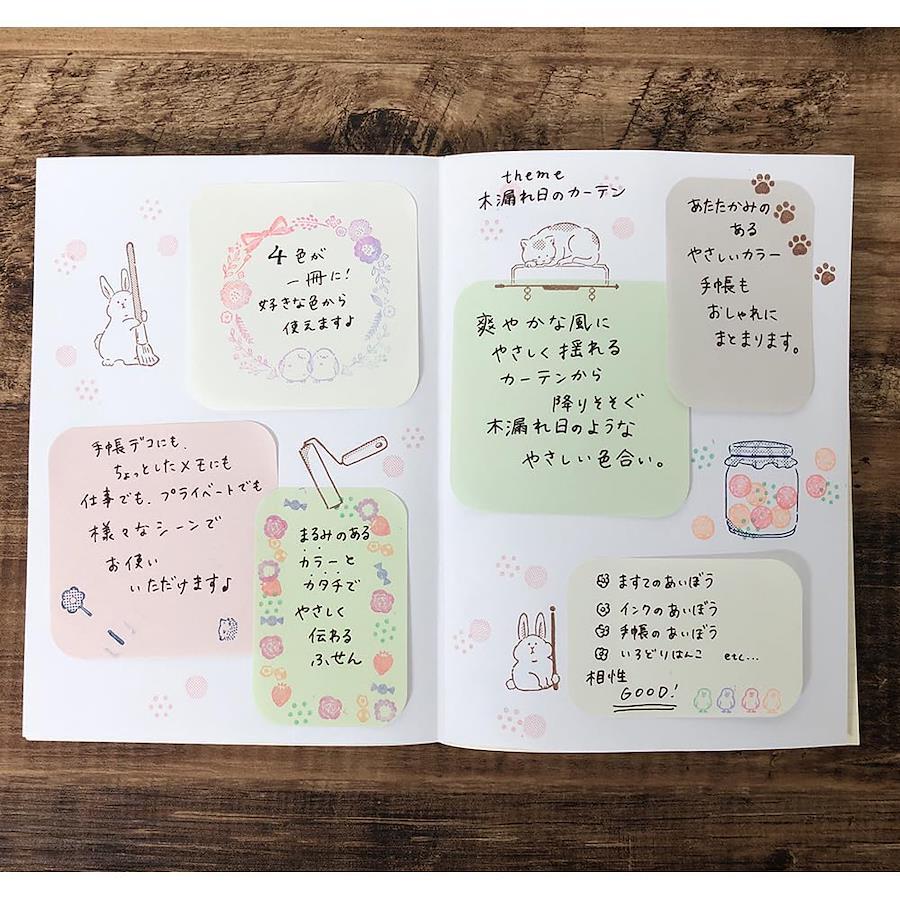 4色が
一冊に!
好きな色から
使えますよ
手帳デコにも、
ちょっとしたメモにも
仕事でも、プライベートでも
様々なシーンで
お使い
いただけます♪
まるみのある
カラーと
カタチで
やさしく
伝わる
ふせん
theme
木漏れ日のカーテン
爽やかな風に
やさしく揺れる
カーテンから
降りそそぐ
木漏れ日のような
やさしい色合い。
あたたかみの
ある
やさしいカラー
手帳も
おしゃれに
まとまります。
ますてのあいぼう
インクのあいぼう
手帳のあいぼう
いろどりはんこ etc...
相性
GOOD!